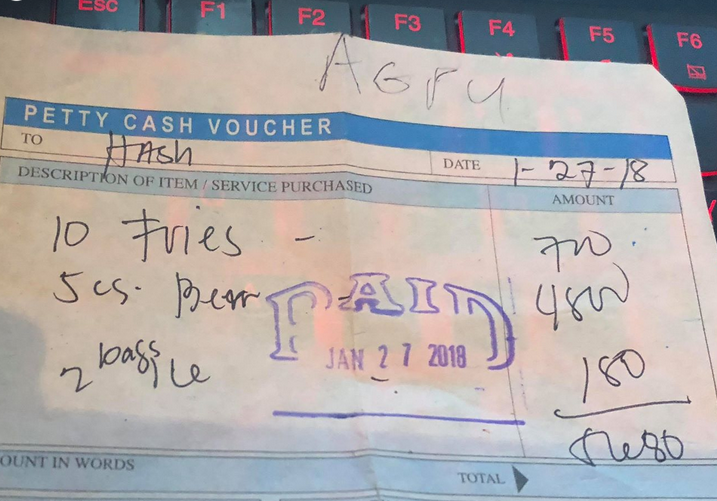 ESC F1 F2 F3 F4 F5 F6
AGFU
PETTY CASH VOUCHER
TO Hash DATE 1-27-18
DESCRIPTION OF ITEM / SERVICE PURCHASED AMOUNT
10 Fries - 700
5 cs. Beer 4800
PAID
JAN 27 2018
2 bags ice 180
5680
OUNT IN WORDS
TOTAL